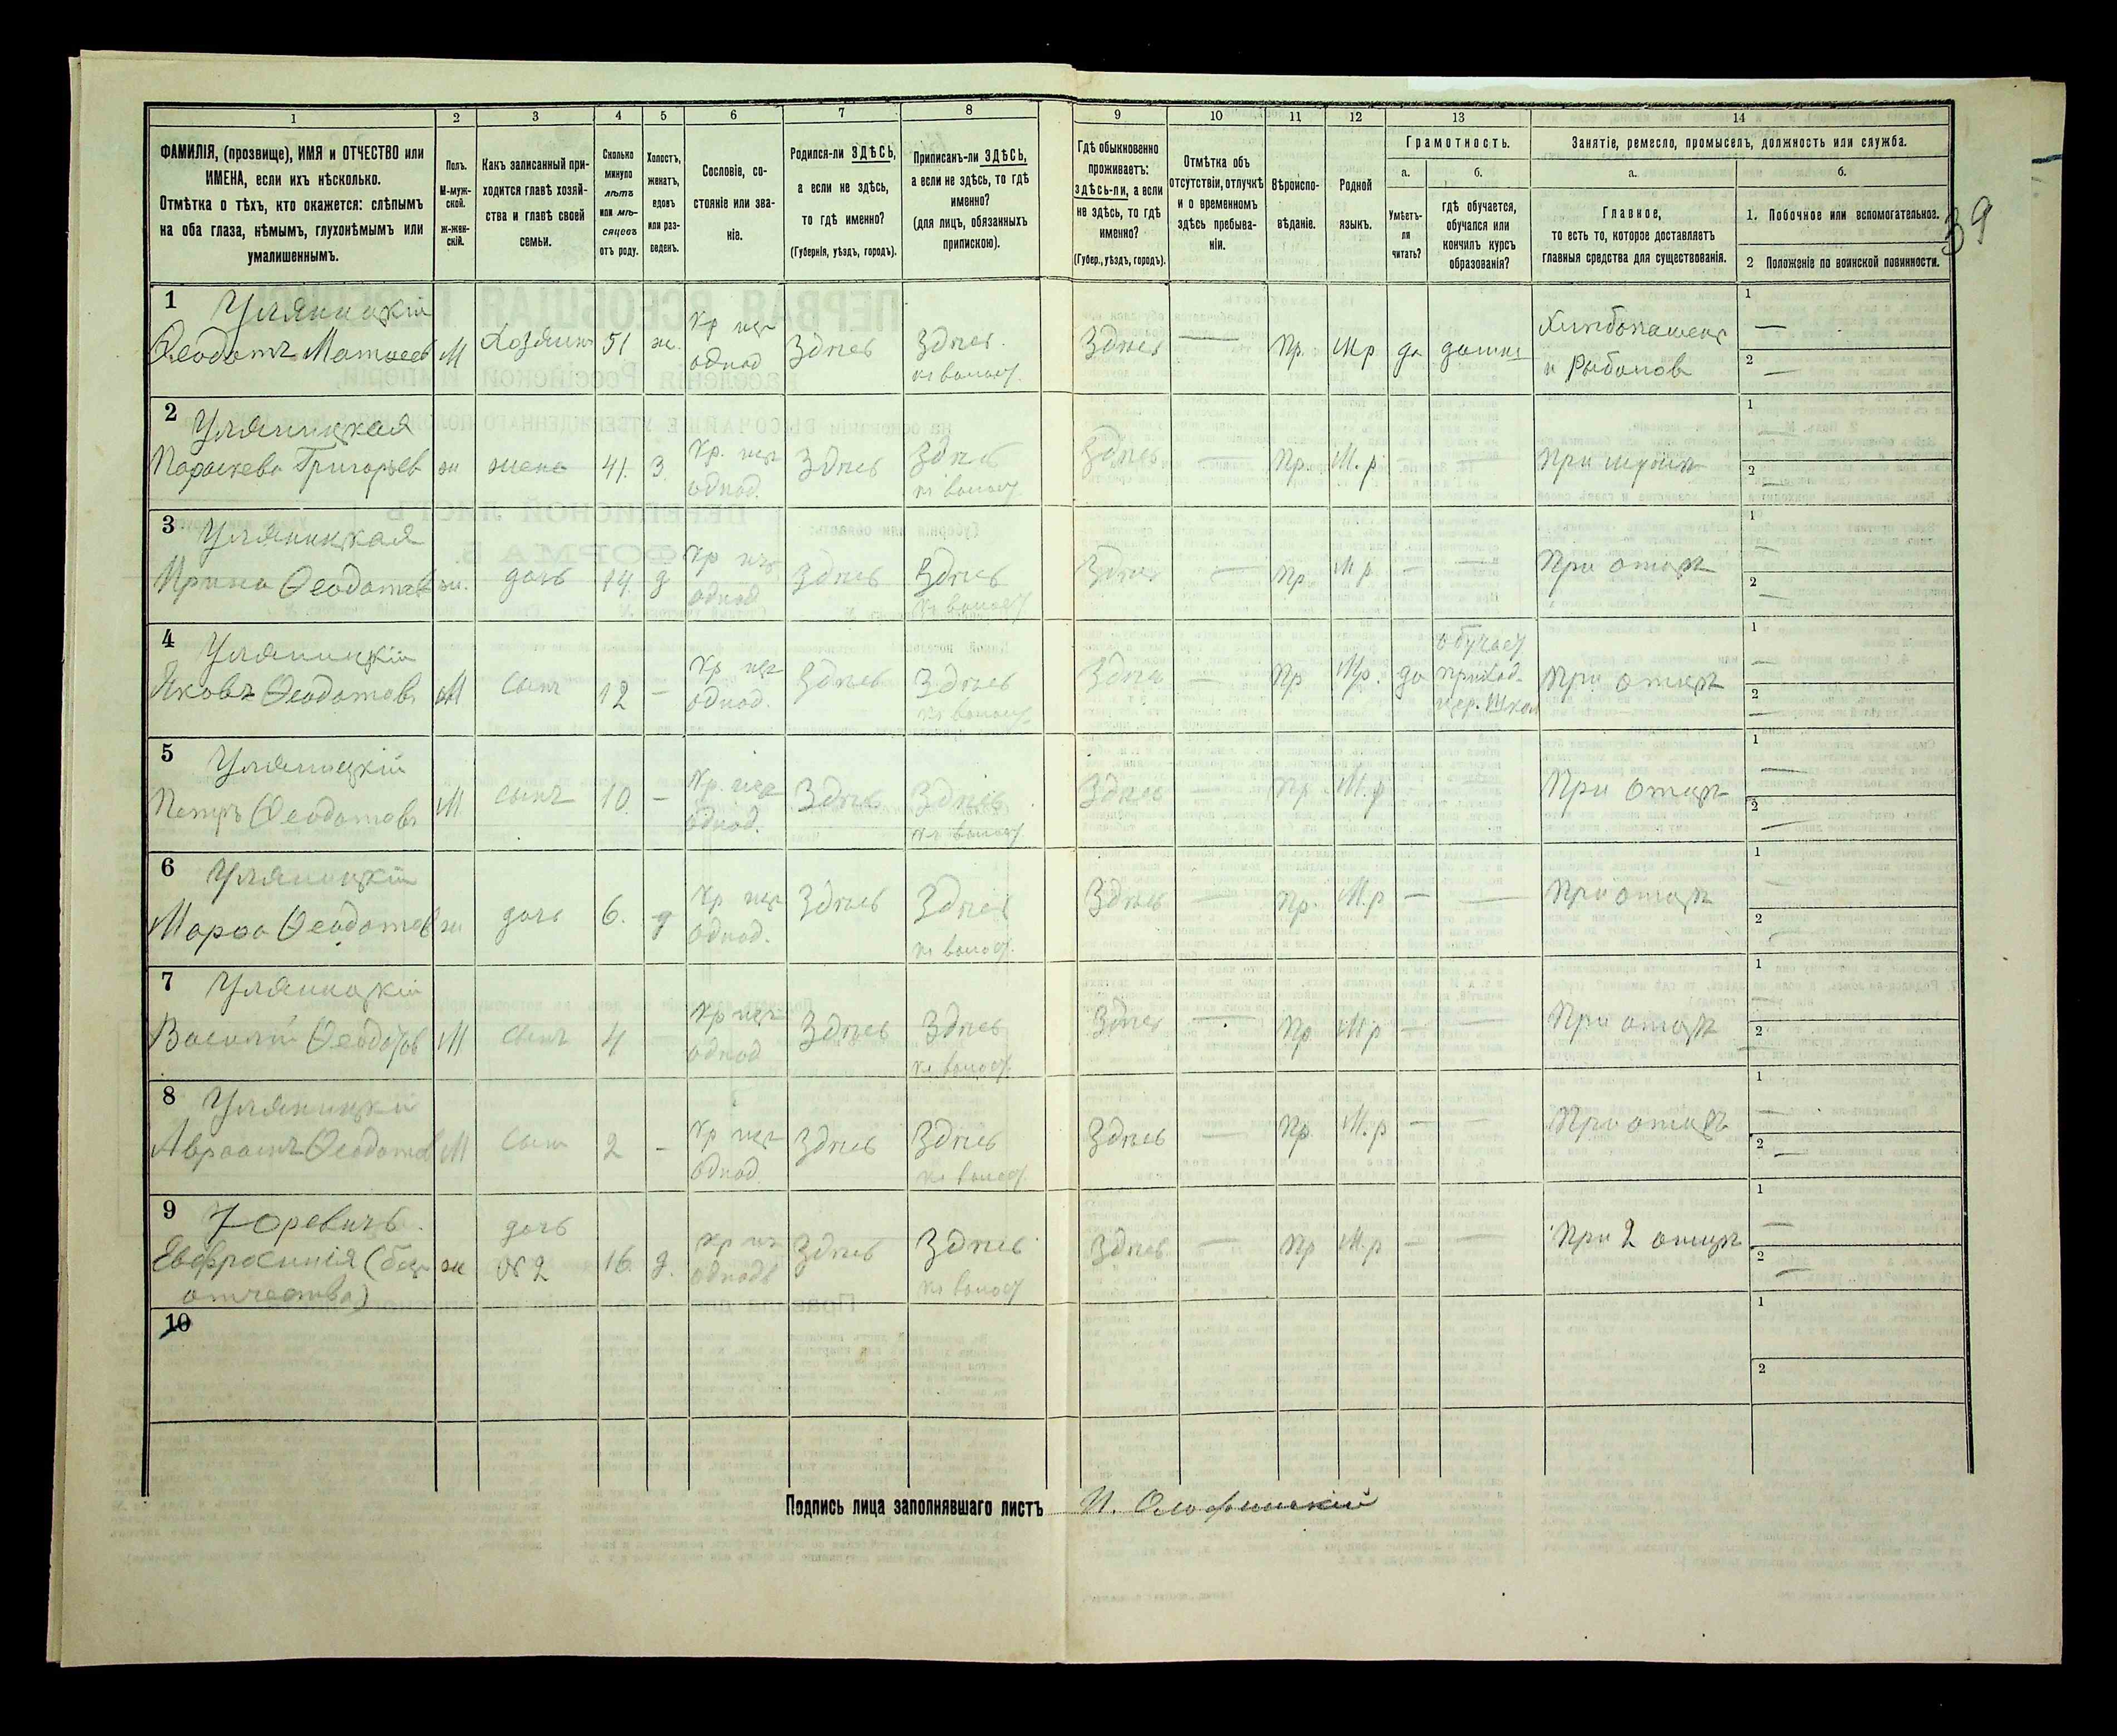 39
1
2
3
4
5
6
7
8
9
10
11
12
13
14
ФАМИЛІЯ, (прозвище), ИМЯ и ОТЧЕСТВО или
ИМЕНА, если ихъ нѣсколько.
Отмѣтка о тѣхъ, кто окажется: слѣпымъ
на оба глаза, нѣмымъ, глухонѣмымъ или
умалишеннымъ.
Полъ.
М-муж-
ской.
Ж-жен-
скій.
Какъ записанный при-
ходится главѣ хозяй-
ства и главѣ своей
семьи.
Сколько
минуло
лѣтъ
или мѣ-
сяцевъ
отъ роду.
Холостъ,
женатъ,
вдовъ
или раз-
веденъ.
Сословіе, со-
стояніе или зва-
ніе.
Родился-ли ЗДѢСЬ,
а если не здѣсь,
то гдѣ именно?
(Губернія, уѣздъ, городъ).
Приписанъ-ли ЗДѢСЬ,
а если не здѣсь, то гдѣ
именно?
(для лицъ, обязанныхъ
припискою).
Гдѣ обыкновенно
проживаетъ:
здѣсь-ли, а если
не здѣсь, то гдѣ
именно?
(Губер., уѣздъ, городъ).
Отмѣтка объ
отсутствіи, отлучкѣ
и о временномъ
здѣсь пребыва-
ніи.
Вѣроиспо-
вѣданіе.
Родной
языкъ.
Грамотность.
а.
Умѣетъ-
ли
читать?
б.
гдѣ обучается,
обучался или
кончилъ курсъ
образованія?
Занятіе, ремесло, промыселъ, должность или служба.
а.
Главное,
то есть то, которое доставляетъ
главныя средства для существованія.
б.
1. Побочное или вспомогательное.
2 Положеніе по воинской повинности.
1 Уляницкій
Ѳеодотъ Матѳеев М Хозяинъ 51 ж. Кр изъ однод Здѣсь Здѣсь къ волост. Здѣсь — Пр. Мр да дома Хлебопашец и Рыболов 1 — 2 —
2 Уляницкая
Параскева Григорьев ж жена 41. З. Кр. изъ однод. Здѣсь Здѣсь къ волост Здѣсь — Пр. М.р — — При мужѣ 1 — 2 —
3 Уляницкая
Ирина Ѳеодотов ж. дочь 14 д Кр изъ однод Здѣсь Здѣсь къ волост Здѣсь — Пр М р — — При отцѣ 1 — 2 —
4 Уляницкій
Яковъ Ѳеодотовъ М сынъ 12 — Кр изъ однод. Здѣсь Здѣсь къ волост Здѣсь — Пр Мр. да обучает приход. цер. Школ При отцѣ 1 — 2 —
5 Уляницкій
Петръ Ѳеодотовъ М сынъ 10 — Кр. изъ однод. Здѣсь Здѣсь къ волост Здѣсь — Пр М.р При отцѣ 1 — 2 —
6 Уляницкій
Марѳа Ѳеодотов ж дочь 6. д Кр изъ однод. Здѣсь Здѣсь къ волост. Здѣсь — Пр. М.р — — При отцѣ 1 — 2 —
7 Уляницкій
Василій Ѳеодотов М сынъ 4 — Кр изъ однод Здѣсь Здѣсь къ волост. Здѣсь — Пр М р — — При отцѣ 1 2 —
8 Уляницкій
Авраамъ Ѳеодотов М сынъ 2 — Кр изъ однод. Здѣсь Здѣсь къ волост. Здѣсь — Пр. М.р — — При отцѣ 1 — 2 —
9 Юревичъ
Евфросинія (безъ
отчества) ж дочь № 2 16. д. Кр изъ однодв Здѣсь Здѣсь къ волост Здѣсь — Пр М.р — — При 2 отцѣ 1 — 2 —
10
1
2
Подпись лица заполнявшаго листъ